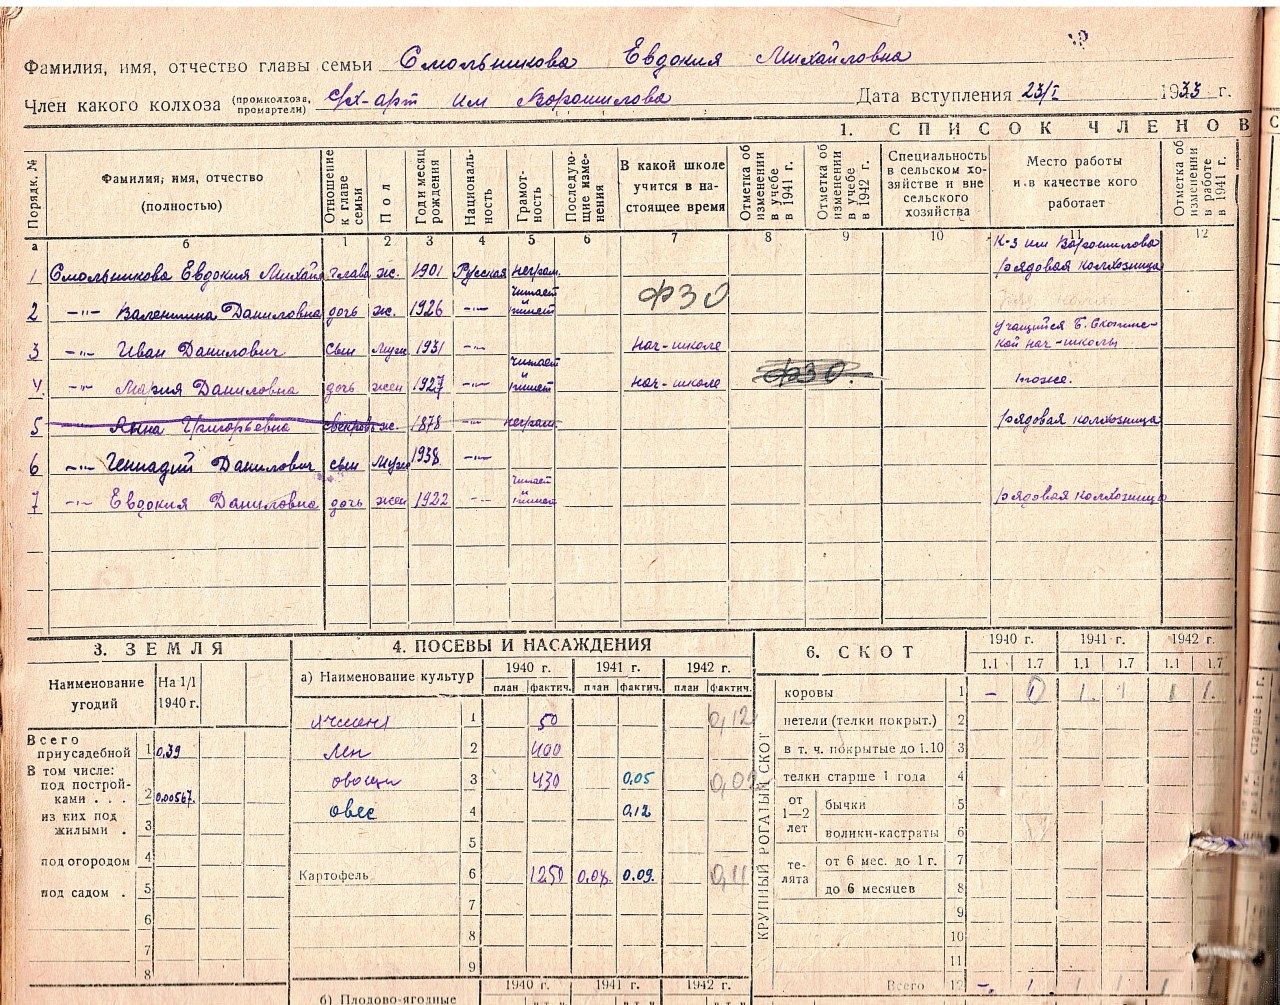 Фамилия, имя, отчество главы семьи Смольникова Евдокия Михайловна
Член какого колхоза (промколхоза, промартели) с/х-арт им Ворошилова Дата вступления 23/I 1933 г.
1. СПИСОК ЧЛЕНОВ С
Порядк. № Фамилия, имя, отчество (полностью) Отношение к главе семьи Пол Год и месяц рождения Националь-ность Грамот-ность Последую-щие изме-нения В какой школе учится в на-стоящее время Отметка об изменении в учебе в 1941 г. Отметка об изменении в учебе в 1942 г. Специальность в сельском хо-зяйстве и вне сельского хозяйства Место работы и в качестве кого работает Отметка об изменении в работе в 1941 г.
а б 1 2 3 4 5 6 7 8 9 10 11 12
1 Смольникова Евдокия Михайл глава ж. 1901 Русская неграм. К-з им Ворошилова рядовая колхозница
2 —"— Валентина Даниловна дочь ж. 1926 —"— читает и пишет ФЗО
3 —"— Иван Данилович сын муж 1931 —"— нач-школе учащийся Б.
кой нач-школы
4. —"— Мария Даниловна дочь жен 1927 —"— читает и пишет нач-школе ФЗО. тоже.
5 —"— Анна Григорьевна свекровь ж. 1878 —"— неграм. рядовая колхозница
6 —"— Геннадий Данилович сын муж 1938 —"—
7 —"— Евдокия Даниловна дочь жен 1922 —"— читает и пишет рядовая колхозница
3. ЗЕМЛЯ
Наименование угодий На 1/1 1940 г.
Всего приусадебной 1 0,39
В том числе:
под построй-ками . . . 2 0.00567.
из них под жилыми . 3
под огородом 4
под садом . 5
6
7
8
4. ПОСЕВЫ И НАСАЖДЕНИЯ
а) Наименование культур 1940 г. 1941 г. 1942 г.
план фактич. план фактич. план фактич.
ячмень 1 50 0,12
лен 2 400
овощи 3 430 0,05 0,02
овес 4 0,12
5
Картофель 6 1250 0.08. 0.09. 0,11
7
8
9
1940 г. 1941 г. 1942 г.
б) Плодово-ягодные
6. СКОТ 1940 г. 1941 г. 1942 г.
1.1 1.7 1.1 1.7 1.1 1.7
КРУПНЫЙ РОГАТЫЙ СКОТ
коровы 1 - 1 1. 1 1 1.
нетели (телки покрыт.) 2
в т. ч. покрытые до 1.10 3
телки старше 1 года 4
от 1—2 лет бычки 5
волики-кастраты 6
те-лята от 6 мес. до 1 г. 7
до 6 месяцев 8
9
10
11
Всего 12 -. 1. 1 1 1 1.
старше 1 г.